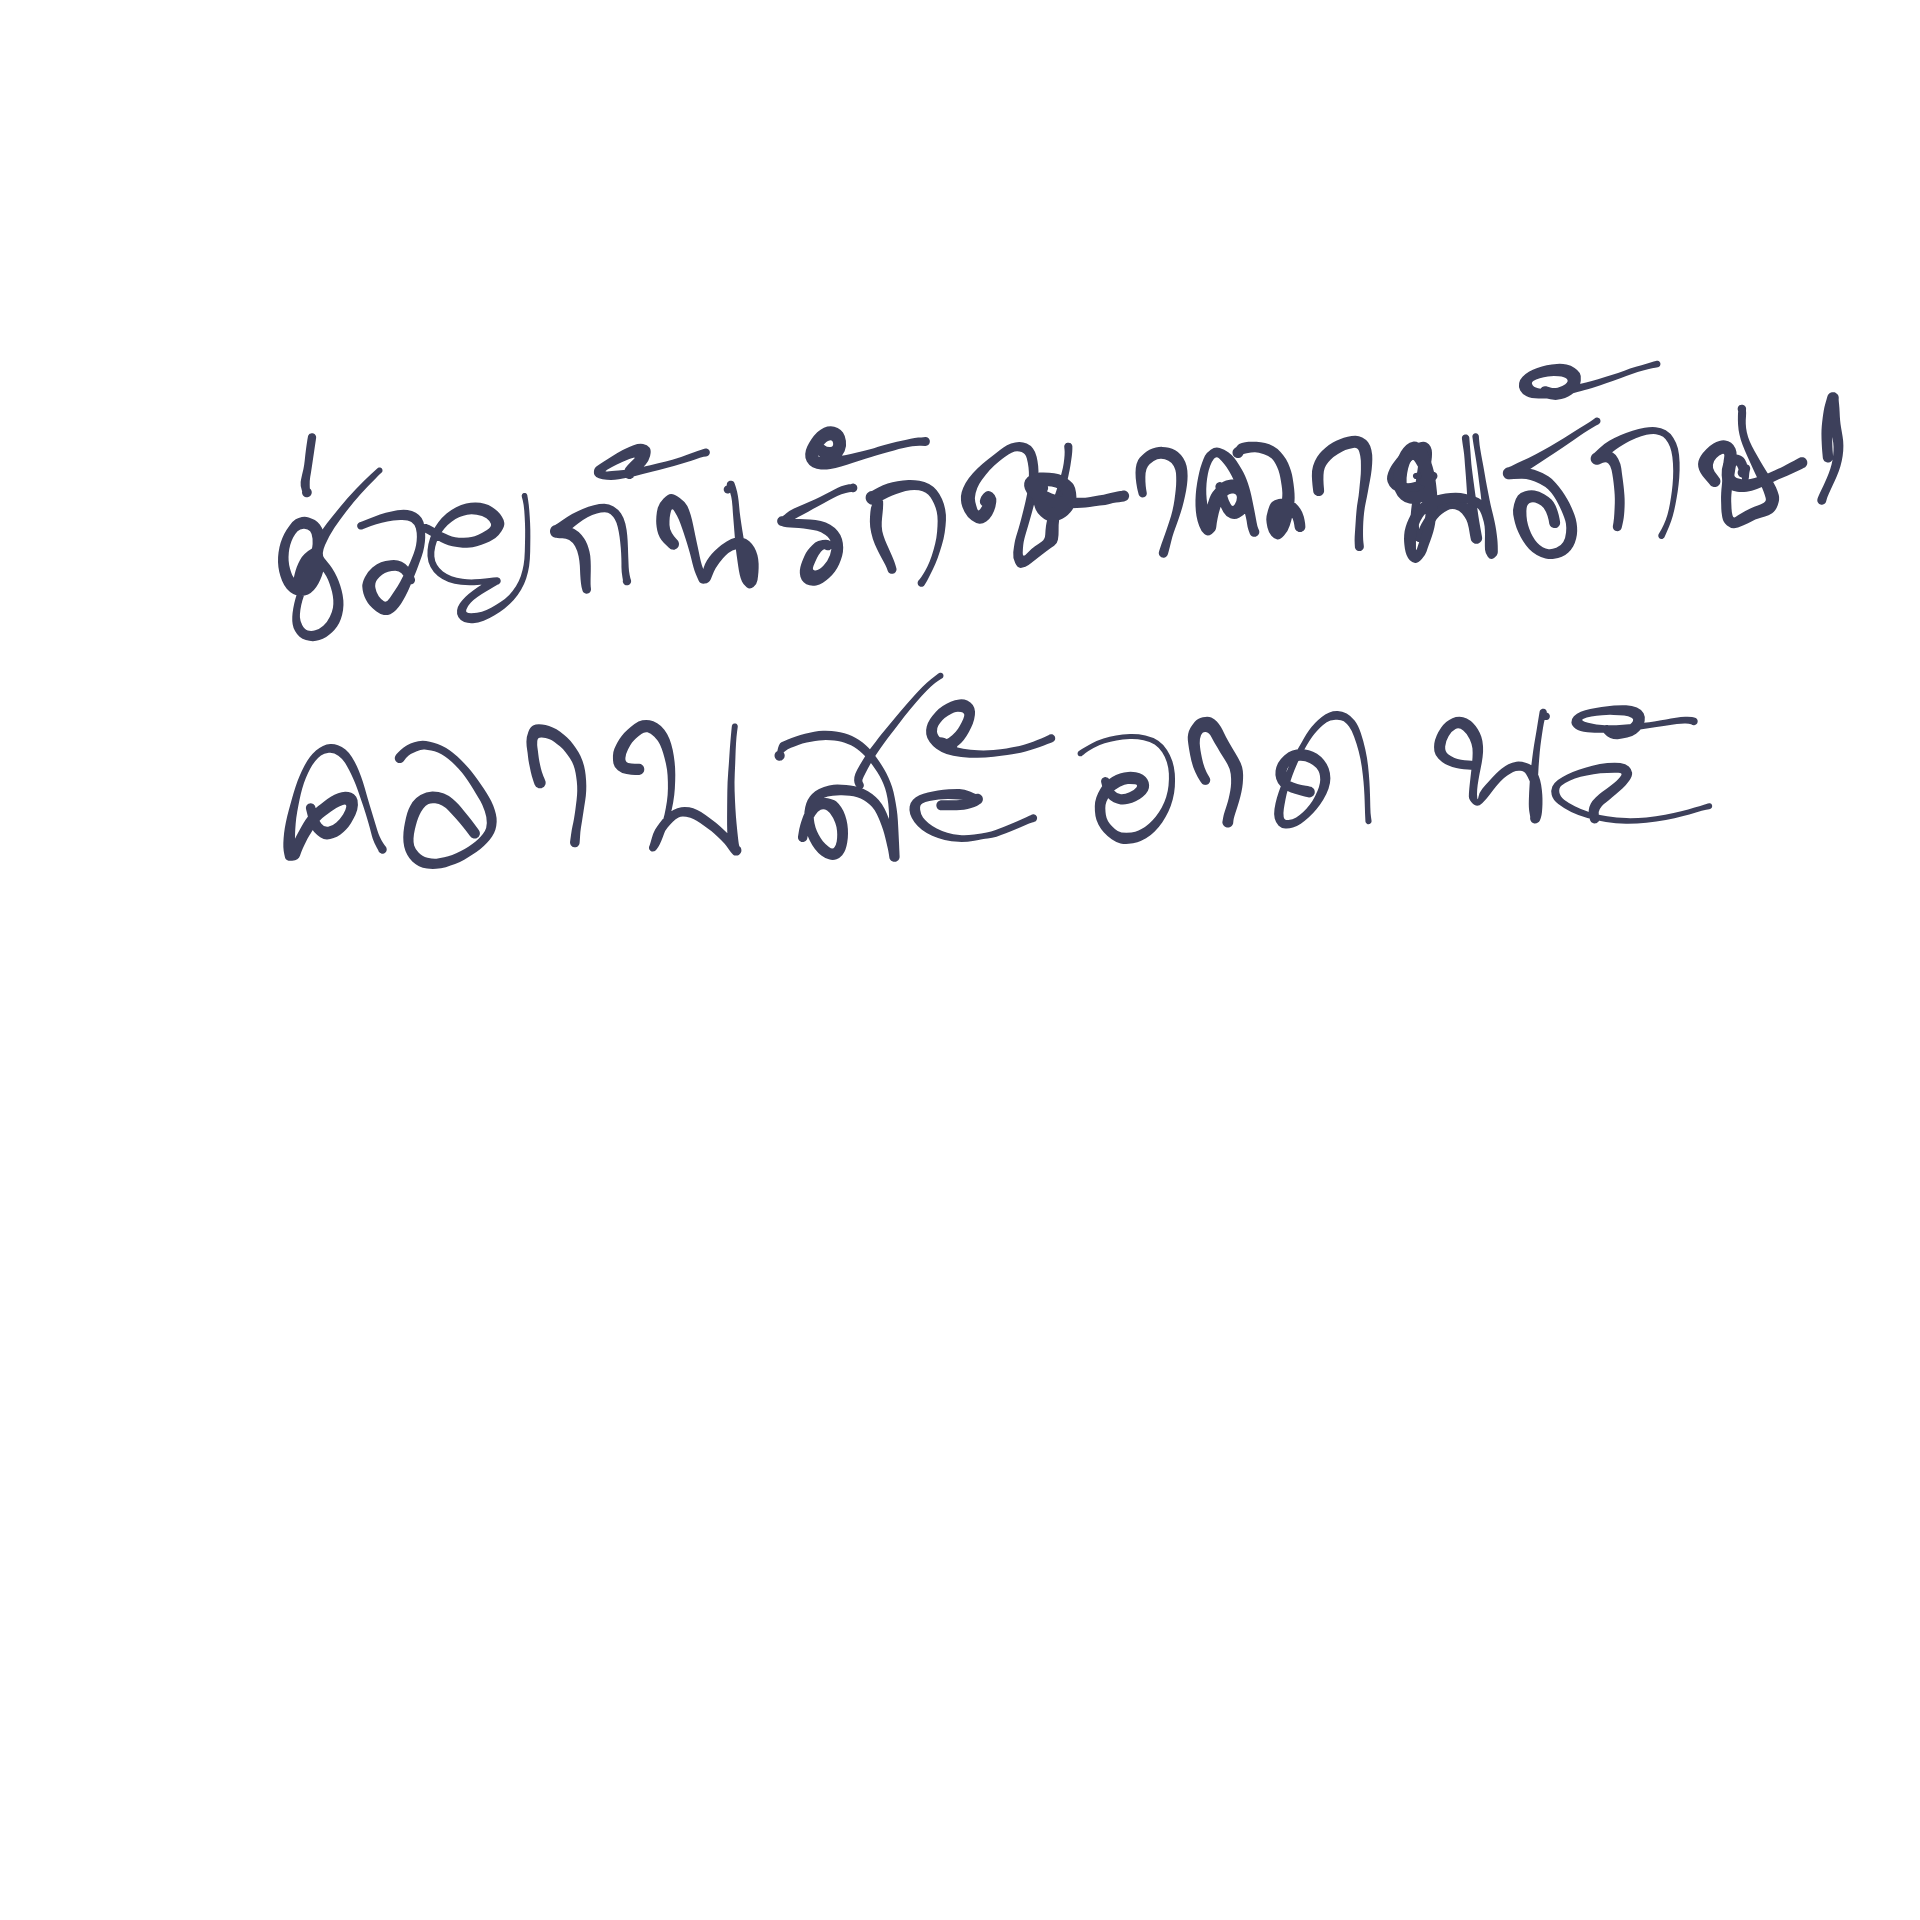 ช่วยกันรักษาความรักษา
ความสะอาดนะ